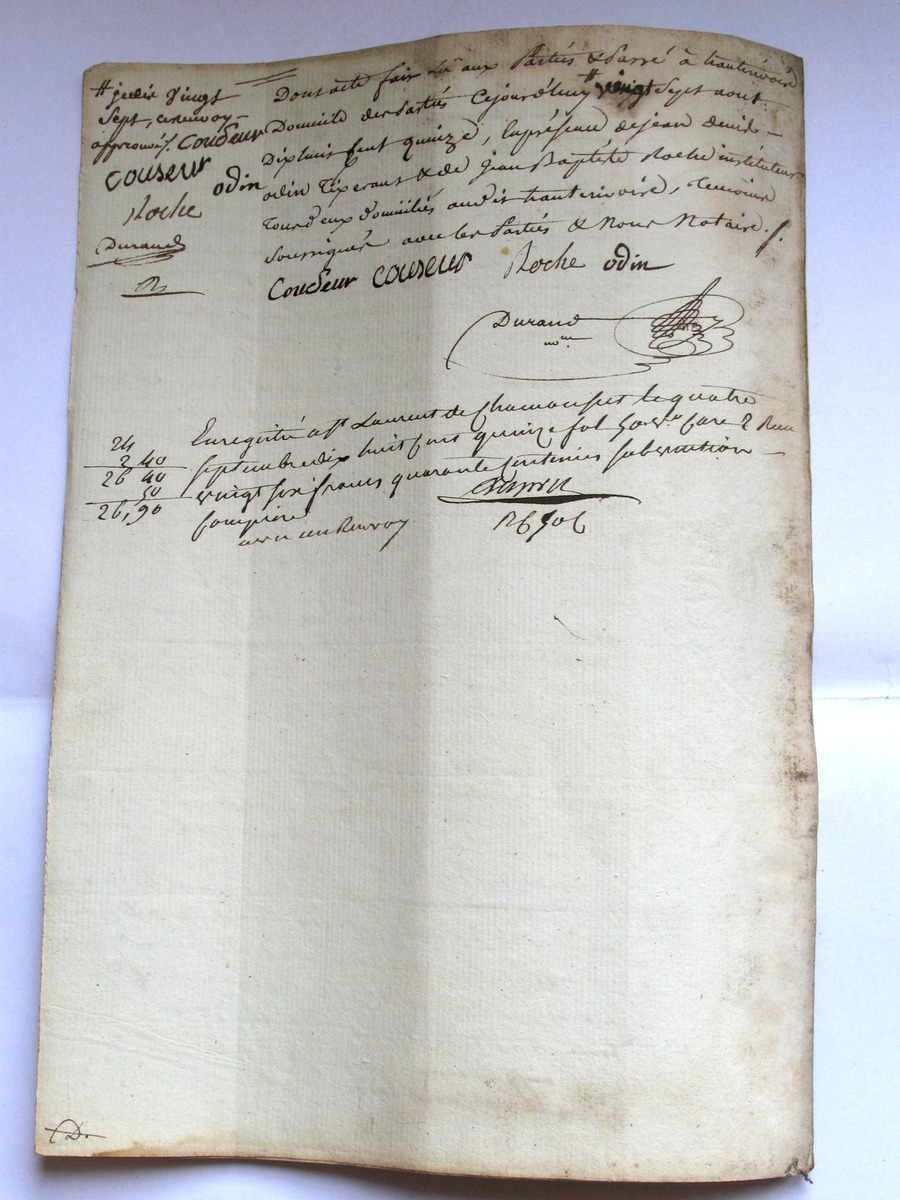 # jeudix vingt
Sept, ce renvoy
approuvé/. Couseur
couseur odin
Roche
Durand
R
Dont acte fait lu aux Parties & Passé à hauterivoire
Domicile des Parties Cejourd'huy # vingt Sept aout
Dixhuit Cent quinze, En présence de jean denis
odin Tixerant & de jean Baptiste Roche instituteur
Tous deux domiciliés audit hauterivoire, temoins
Soussignés avec les Parties & Nous Notaire ./.
Couseur couseur Roche odin
Durand
nore
Enregistré a St Laurent de Chamousset le quatre
Septembre dix huit Cent quinze fol 50 Case 2 Reçu
vingt six francs quarante Centimes subvention
Comprise
avec un Renvoy
24
2 40
26 40
50
26,90
D.